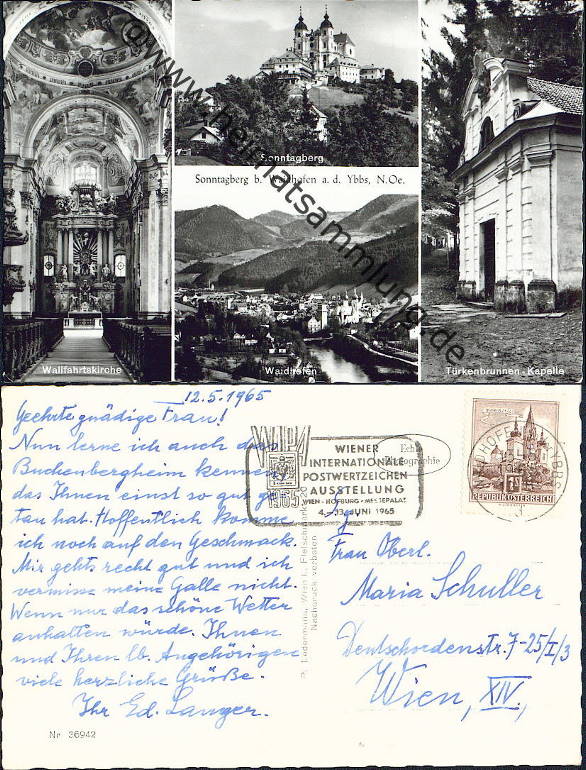 Sonntagberg
Sonntagberg b. Waidhofen a. d. Ybbs, N.Oe.
Wallfahrtskirche
Waidhofen
Türkenbrunnen - Kapelle
www.heimatsammlung.de
12.5.1965
Geehrte gnädige Frau!
Nun lerne ich auch das
Buchenbergheim kennen,
das Ihnen einst so gut ge
tan hat. Hoffentlich komme
ich noch auf den Geschmack.
Mir gehts recht gut und ich
vermisse meine Galle nicht.
Wenn nur das schöne Wetter
anhalten würde. Ihnen
und Ihren lb. Angehörigen
viele herzliche Grüße.
Ihr Ed. Langer.
Nr 36942
P. Ledermann, Wien I., Fleischmarkt 20
Nachdruck verboten
WIPA
1965
WIENER
INTERNATIONALE
POSTWERTZEICHEN
AUSSTELLUNG
WIEN - HOFBURG - MESSEPALAST
4.-13. JUNI 1965
Echte
Photographie
REPUBLIK ÖSTERREICH
Frau Oberl.
Maria Schuller
Deutschordenstr. 7-25/I/3
Wien, XIV.